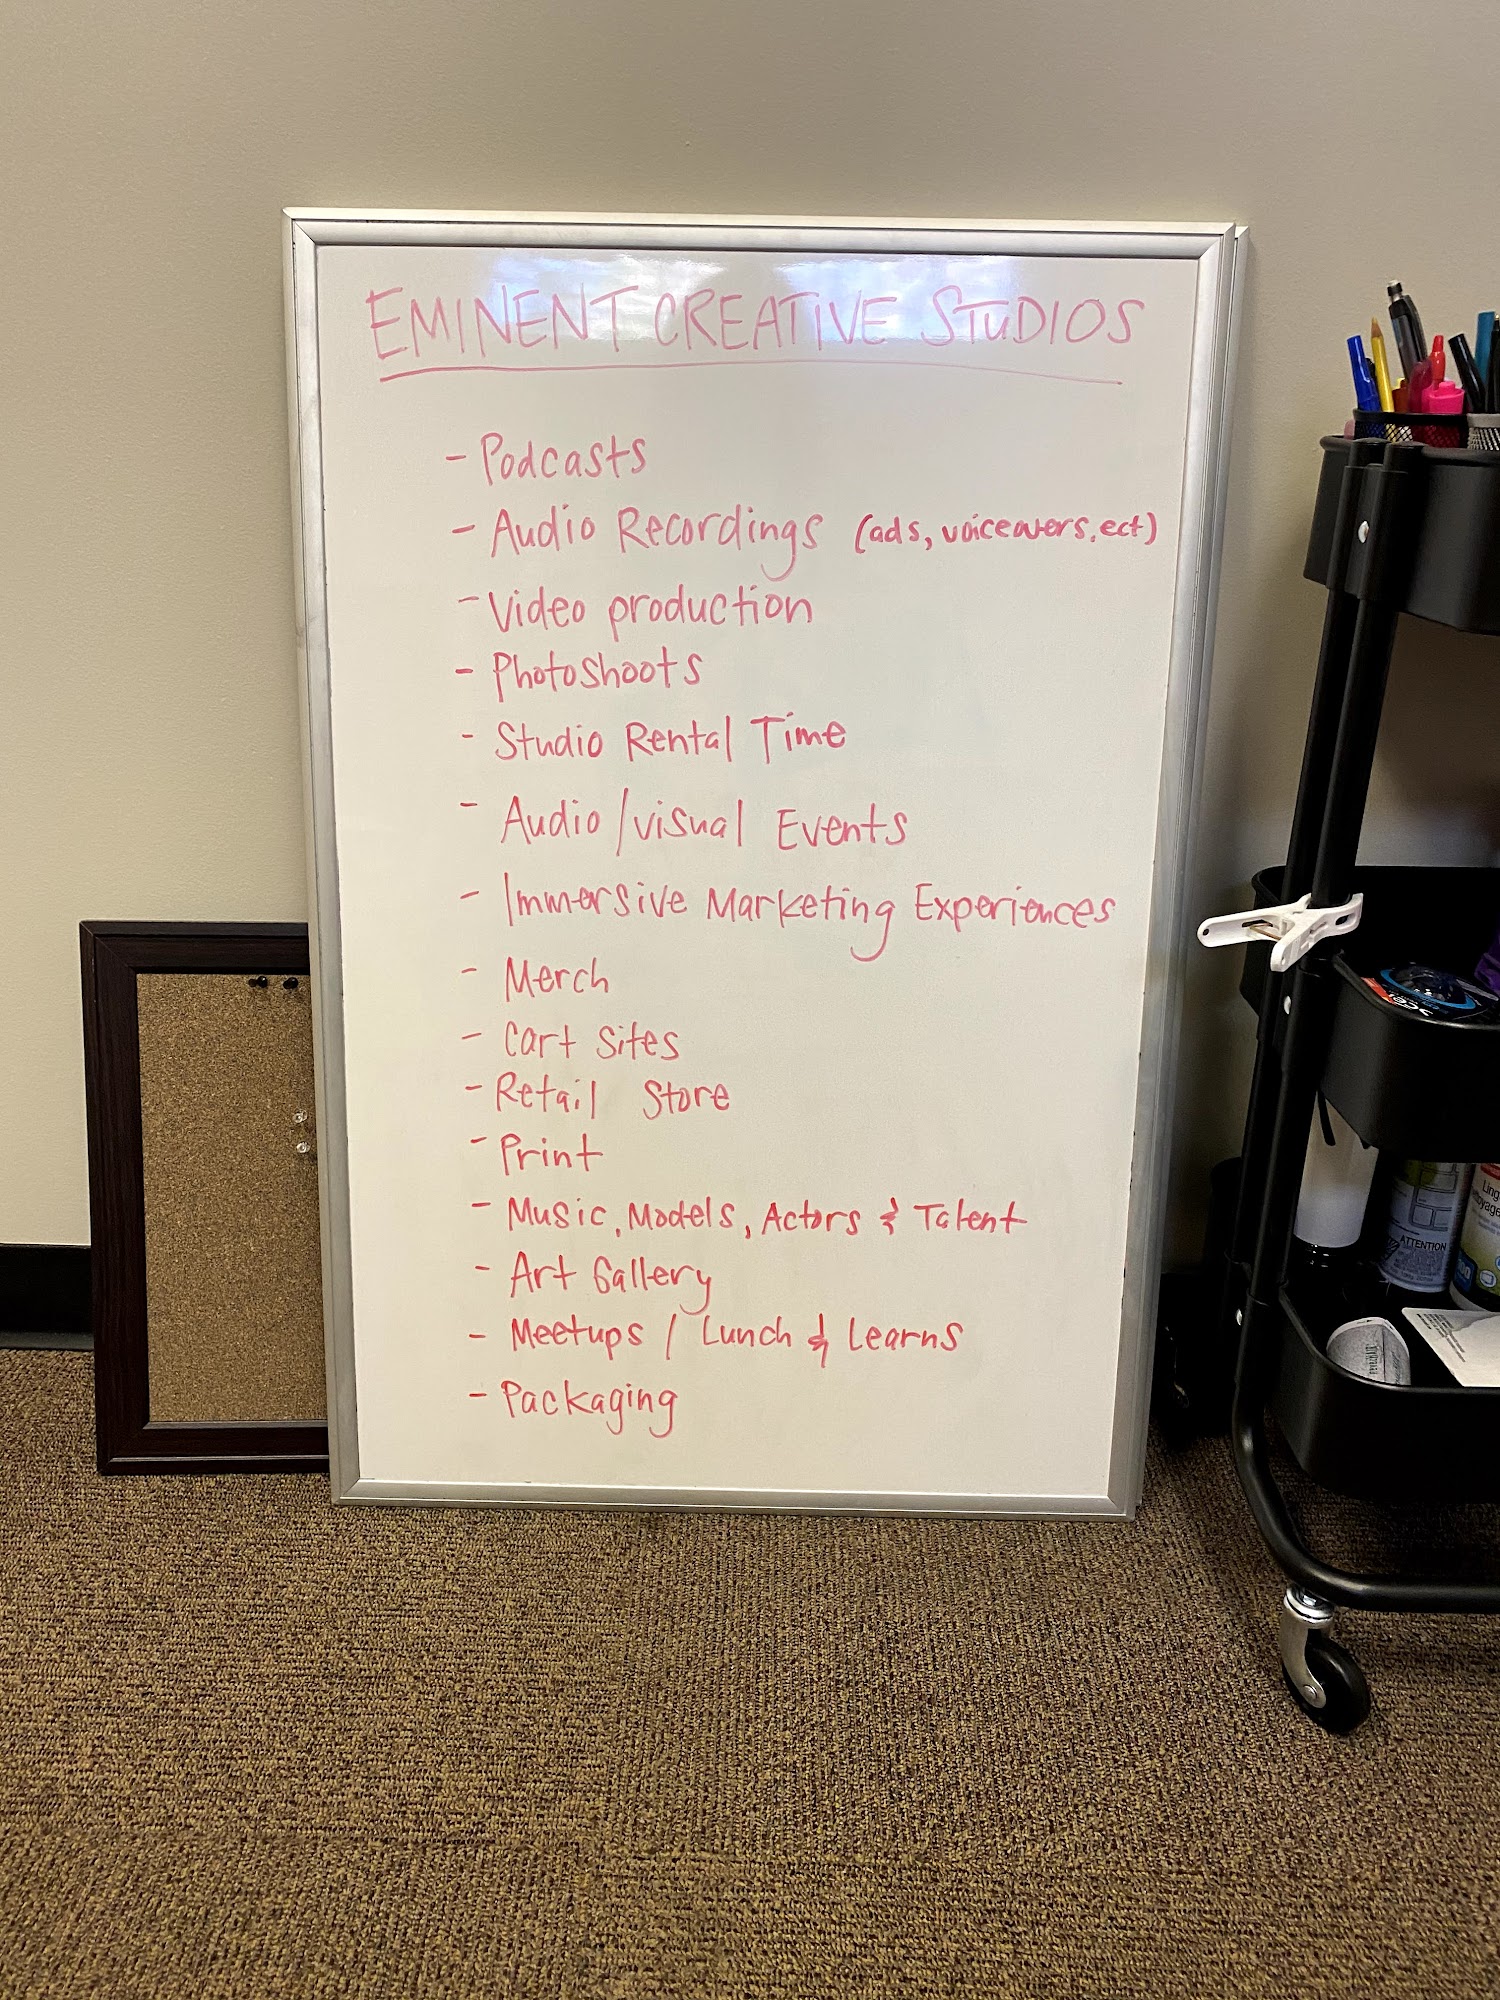 EMINENT CREATIVE STUDIOS
- Podcasts
- Audio Recordings (ads, voiceovers, ect)
- Video production
- Photoshoots
- Studio Rental Time
- Audio/visual Events
- Immersive Marketing Experiences
- Merch
- Cart Sites
- Retail Store
- Print
- Music, Models, Actors & Talent
- Art Gallery
- Meetups / Lunch & Learns
- Packaging
ATTENTION